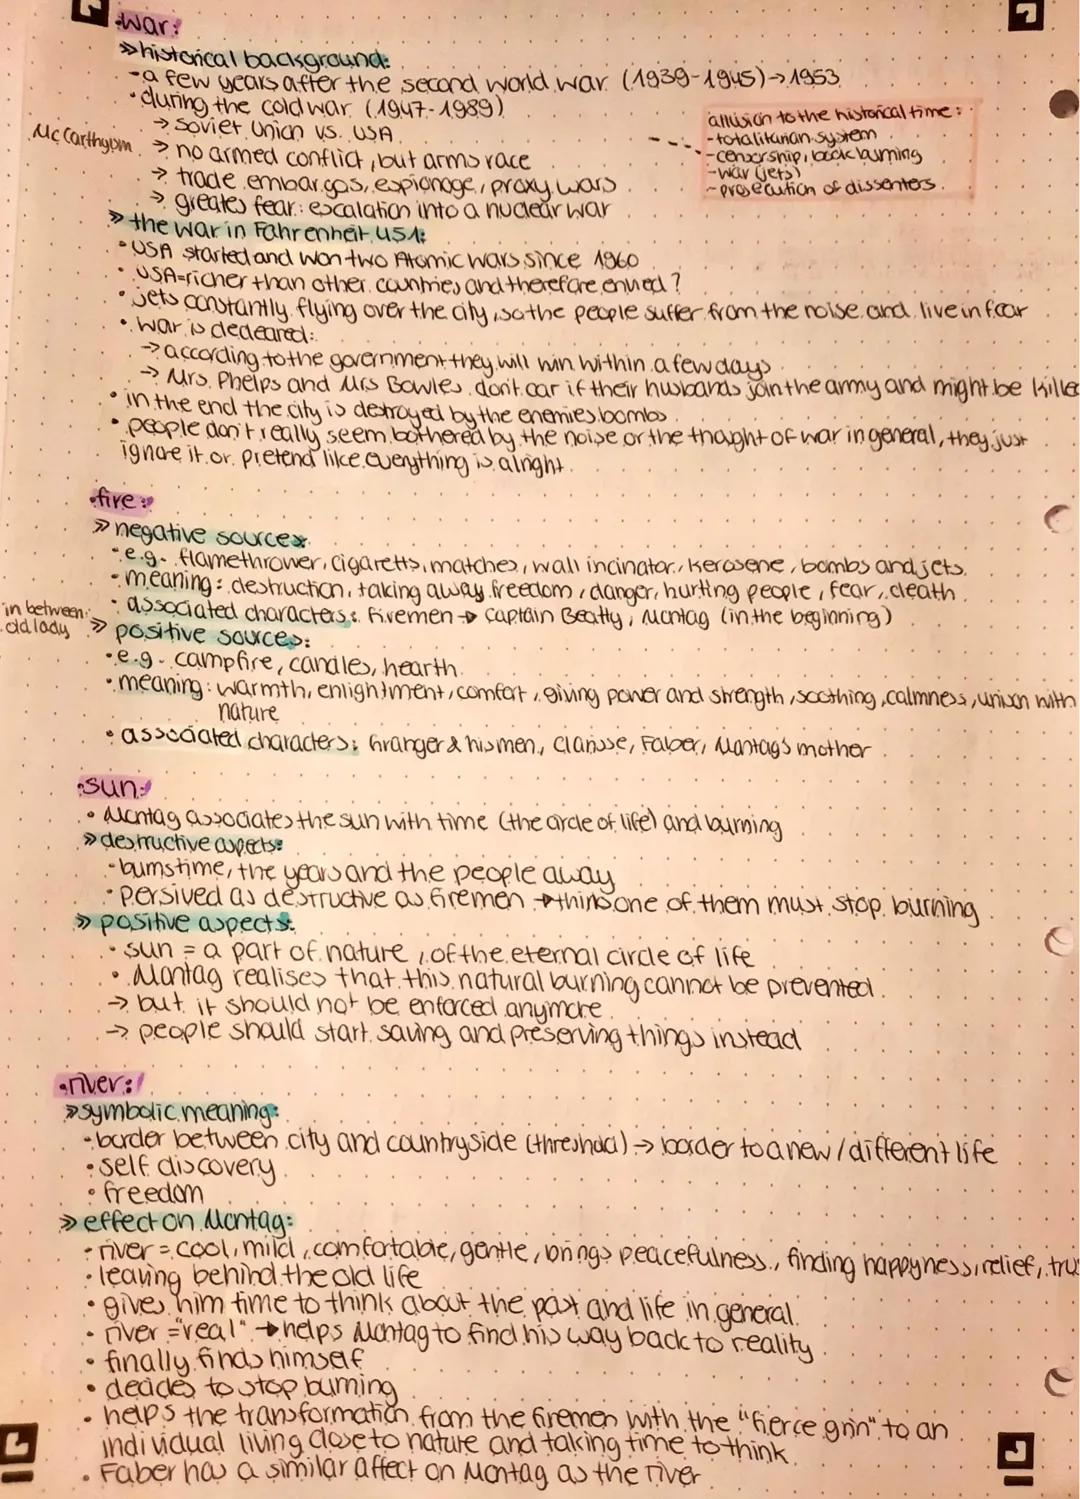 •war:
»historical background:
-a few years after the second world war (1939-1945)→1953
•during the cold war (1947-1989)
→ soviet Union vs. USA
Mc Carthyism
→ no armed conflict, but arms race
→ trade embargos, espionage, proxy wars
→ greates fear: escalation into a nuclear war
allusion to the historical time:
-totalitarian system
-censorship, book burning
-war (jets)
-prosecution of dissenters
» the war in Fahrenheit 451:
•USA started and won two Atomic wars since 1960
•USA=richer than other countries and therefore envied?
•jets constantly flying over the city, so the people suffer from the noise and live in fear
•war is decleared:
→ according to the government they will win within a few days
→ Mrs. Phelps and Mrs Bowles don't car if their husbands join the army and might be killed
•in the end the city is destroyed by the enemies bombs
•people don't really seem bothered by the noise or the thought of war in general, they just
ignore it or pretend like everything is alright.
•fire:
» negative sources:
•e.g. flamethrower, cigaretts, matches, wall incinator, kerosene, bombs and jets.
•meaning: destruction, taking away freedom, danger, hurting people, fear, death
•associated characters: firemen → captain Beatty, Montag (in the beginning)
in between:
old lady
» positive sources:
•e.g. campfire, candles, hearth
•meaning: warmth, enlightment, comfort, giving power and strength, soothing, calmness, union with
nature
•associated characters: Granger & his men, Clarisse, Faber, Montag's mother
•sun:
•Montag associates the sun with time (the circle of life) and burning
»destructive aspects:
•burns time, the years and the people away
•persived as destructive as firemen → thinks one of them must stop burning
» positive aspects:
•sun = a part of nature, of the eternal circle of life
•Montag realises that this natural burning cannot be prevented
→ but it should not be enforced anymore
→ people should start saving and preserving things instead
•river:
»symbolic meaning:
•border between city and countryside (threshold) → border to a new / different life
•self discovery
•freedom
» effect on Montag:
•river = cool, mild, comfortable, gentle, brings peacefulness, finding happyness, relief,
•leaving behind the old life
•gives him time to think about the past and life in general
•river = "real" → helps Montag to find his way back to reality
•finally finds himself
•decides to stop burning
•helps the transformation from the firemen with the "fierce grin" to an
individual living close to nature and taking time to think
•Faber has a similar affect on Montag as the river